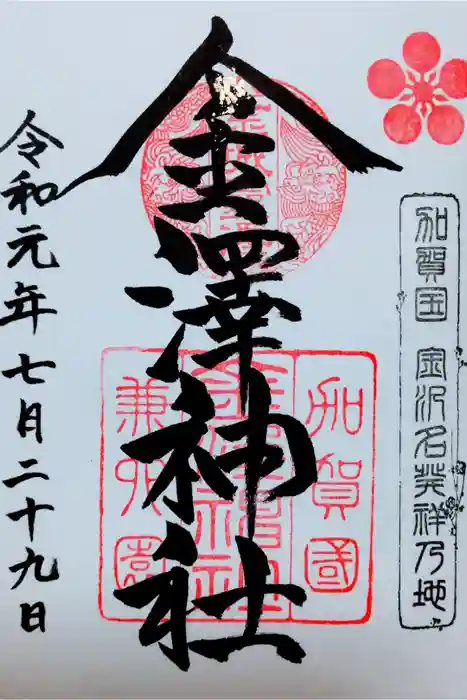 加賀国 金沢名発祥乃地
金澤神社
加賀國
金澤神社
兼六園
令和元年七月二十九日